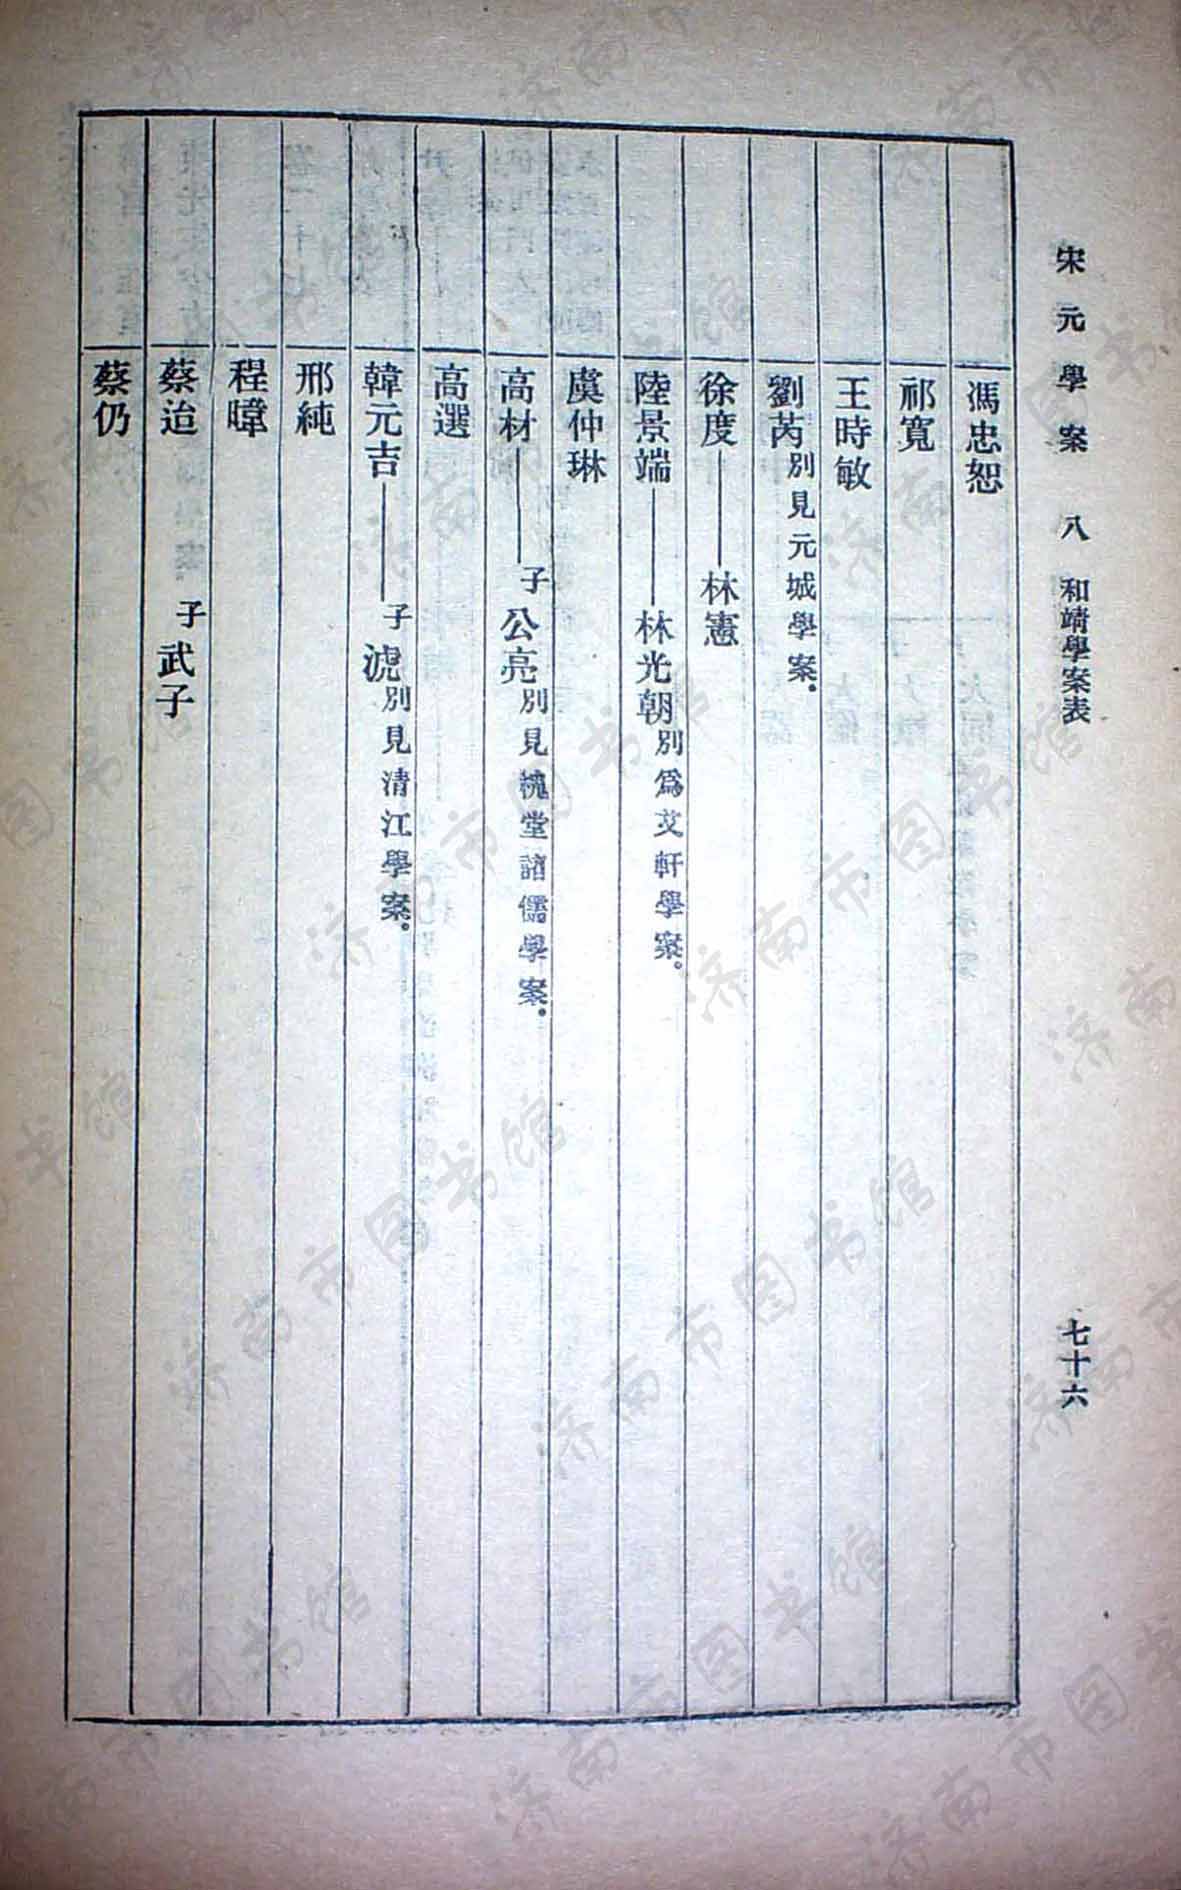 宋元學案 八 和靖學案表 七十六
馮忠恕
祁寬
王時敏
劉芮別見元城學案。
徐度——林憲
陸景端——林光朝別爲艾軒學案。
虞仲琳
高材——子公亮別見槐堂諸儒學案。
高選
韓元吉——子淲別見清江學案。
邢純
程暐
蔡迨 子武子
蔡仍
济南市图书馆